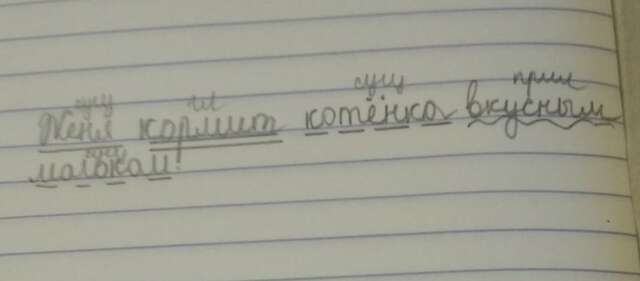 сущ гл сущ прил
Женя кормит котёнка вкусным
сущ
молоком.